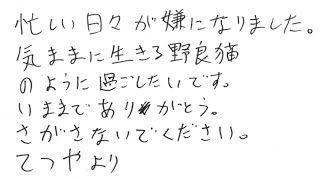 忙しい日々が嫌になりました。
気ままに生きる野良猫
のように過ごしたいです。
いままでありがとう。
さがさないでください。
てつやより